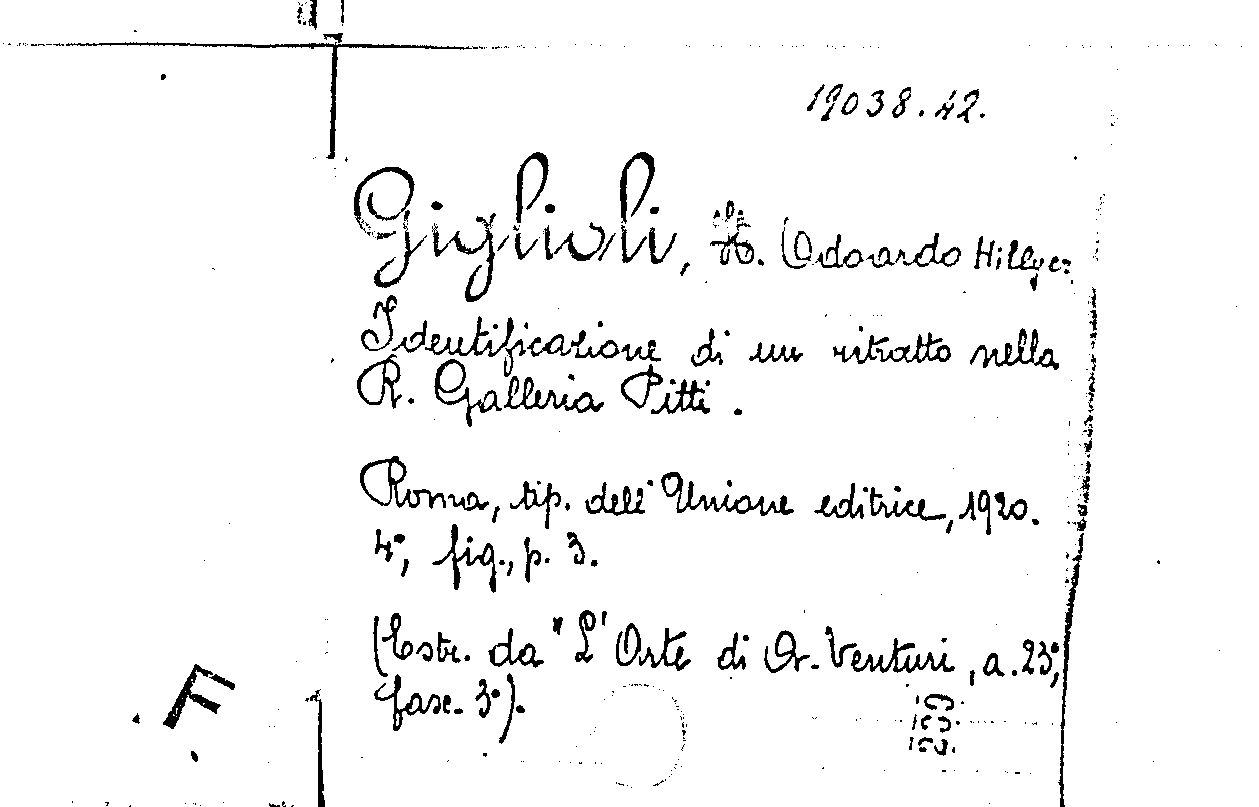 19038.42.
Giglioli, H. Odoardo Hillyer
Identificazione di un ritratto nella
R. Galleria Pitti.
Roma, tip. dell'Unione editrice, 1920.
4°, fig., p. 3.
(Estr. da "L'Arte di A. Venturi, a. 23°,
fasc. 3°).
F